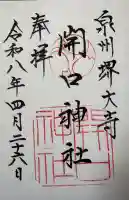 泉州堺大寺
開口神社
奉拝
令和八年四月二十六日